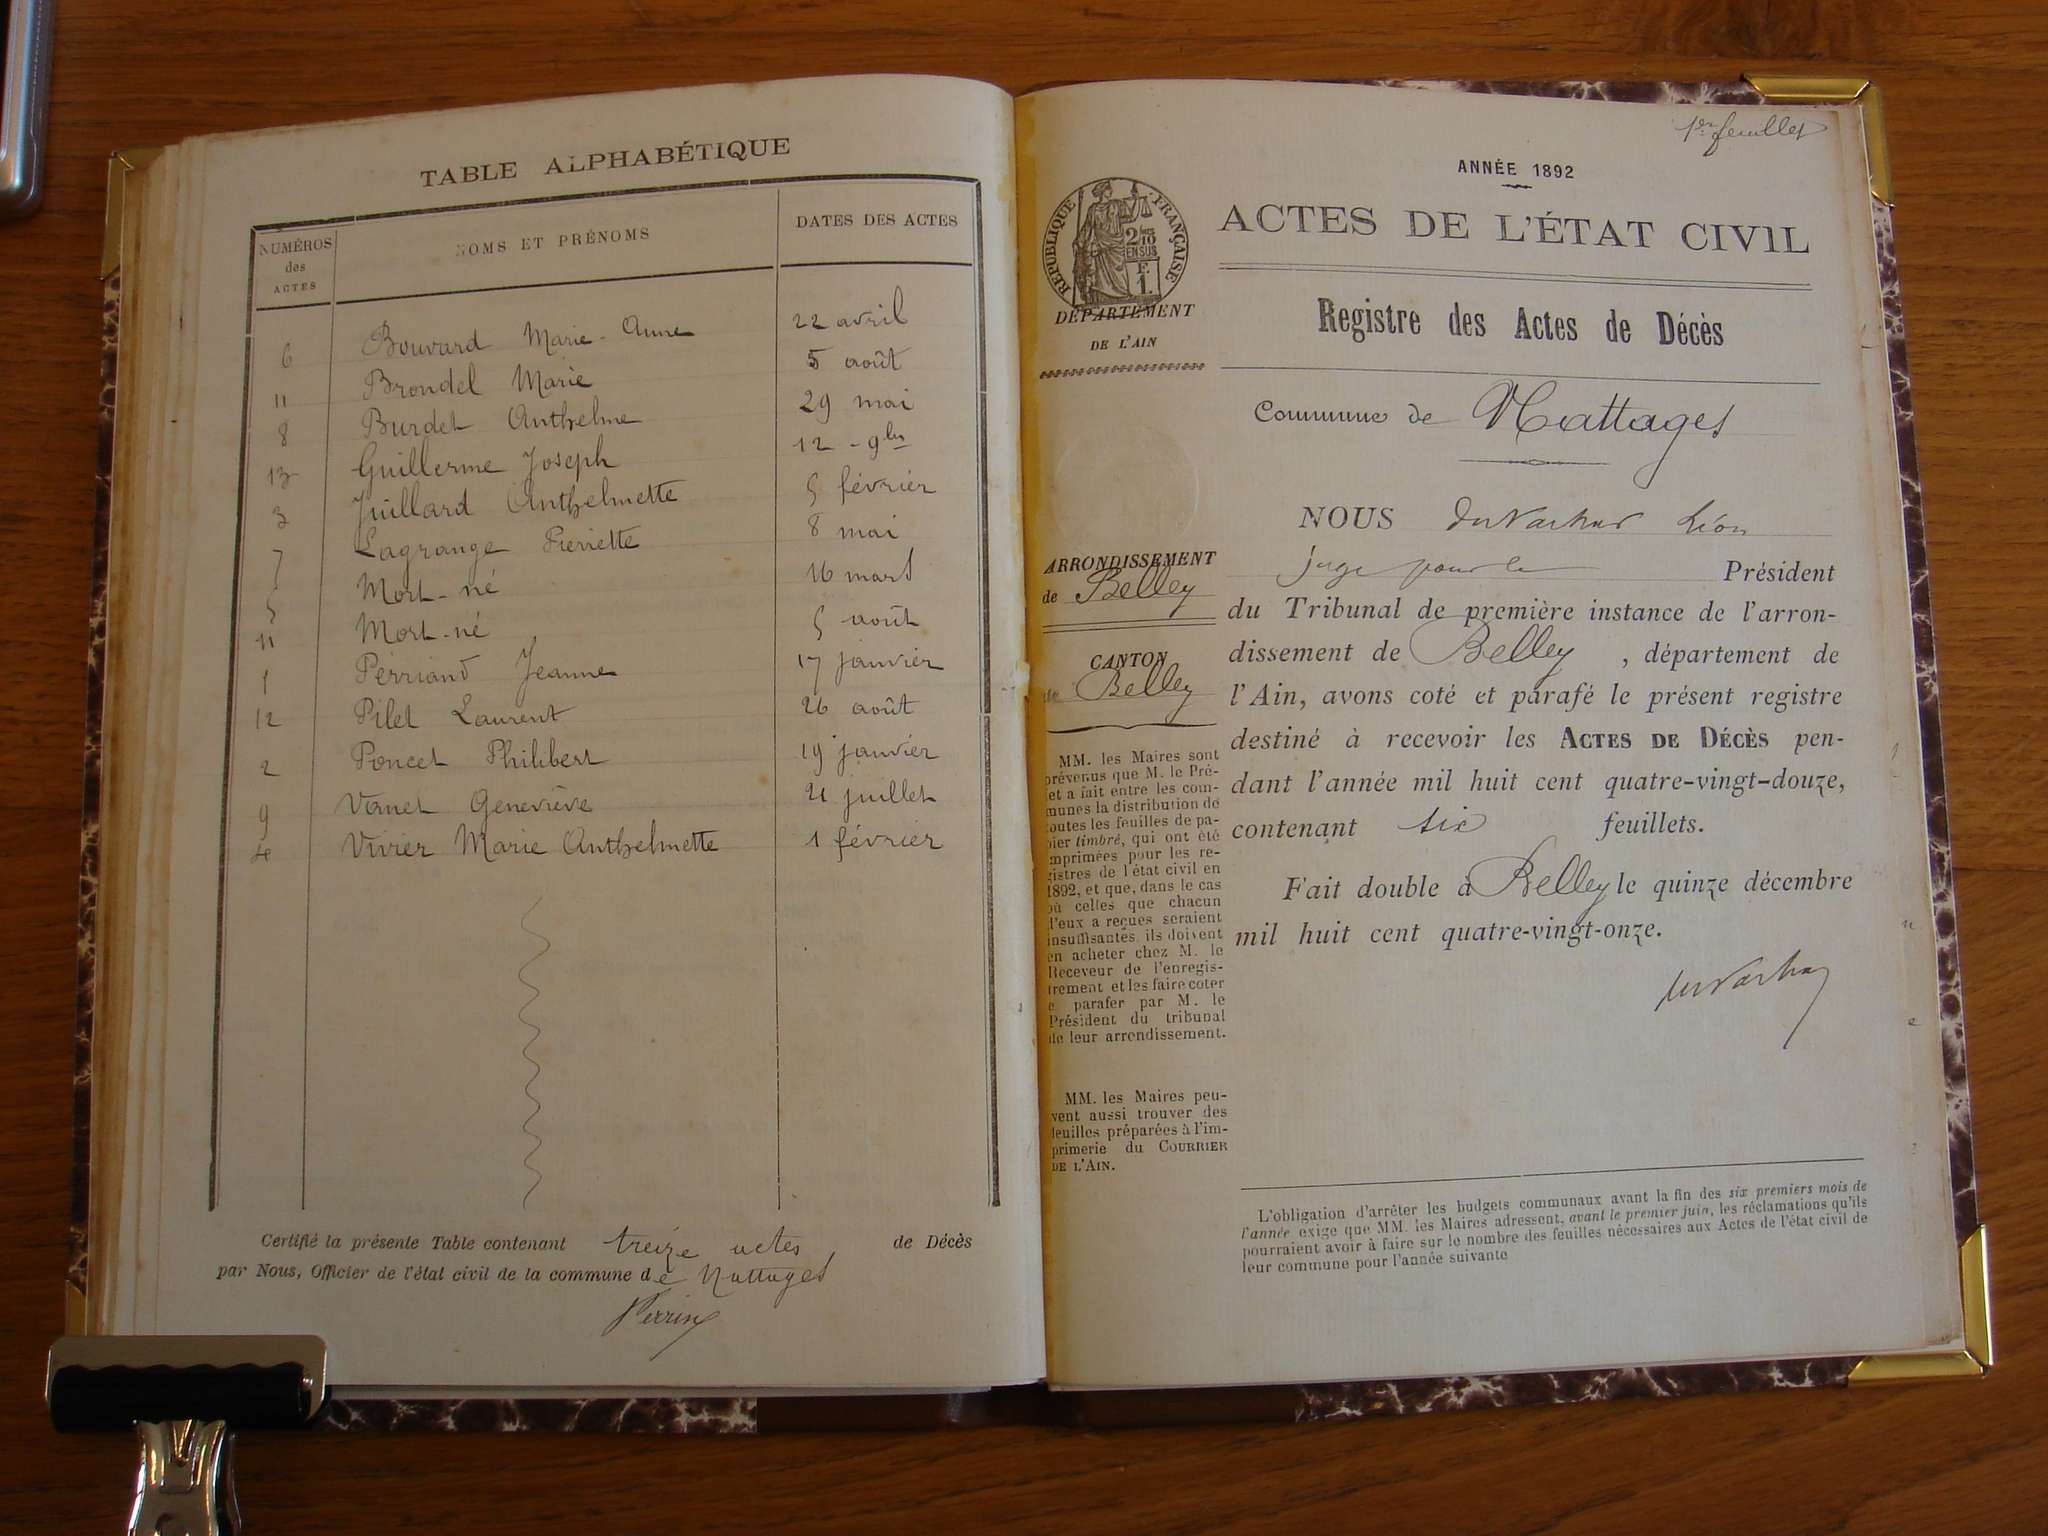 TABLE ALPHABÉTIQUE
NUMÉROS des ACTES
NOMS ET PRÉNOMS
DATES DES ACTES
6 Bouvard Marie-Anne 22 avril
11 Brondel Marie 5 août
8 Burdet Anthelme 29 mai
13 Guillerme Joseph 12 - 9bre
3 Juillard Anthelmette 5 février
7 Lagrange Pierrette 8 mai
5 Mort-né 16 mars
11 Mort-né 5 août
1 Perriand Jeanne 17 janvier
12 Pilet Laurent 26 août
2 Poncet Philibert 19 janvier
9 Vernet Geneviève 21 juillet
4 Vivier Marie Anthelmette 1 février
Certifié la présente Table contenant treize actes de Décès
par Nous, Officier de l'état civil de la commune de Nattages
Perrin
1er feuillet
ANNÉE 1892
ACTES DE L'ÉTAT CIVIL
RÉPUBLIQUE FRANÇAISE
2/10 EN SUS
F. 1.
DÉPARTEMENT
DE L'AIN
Registre des Actes de Décès
Commune de Nattages
ARRONDISSEMENT
de Belley
CANTON
de Belley
MM. les Maires sont
prévenus que M. le Pré-
fet a fait entre les com-
munes la distribution de
toutes les feuilles de pa-
pier timbré, qui ont été
imprimées pour les re-
gistres de l'état civil en
1892, et que, dans le cas
où celles que chacun
d'eux a reçues seraient
insuffisantes, ils doivent
en acheter chez M. le
Receveur de l'enregis-
trement et les faire coter
e parafer par M. le
Président du tribunal
de leur arrondissement.
MM. les Maires peu-
vent aussi trouver des
feuilles préparées à l'im-
primerie du COURRIER
DE L'AIN.
NOUS Léon
juge pour le Président
du Tribunal de première instance de l'arron-
dissement de Belley, département de
l'Ain, avons coté et parafé le présent registre
destiné à recevoir les ACTES DE DÉCÈS pen-
dant l'année mil huit cent quatre-vingt-douze,
contenant six feuillets.
Fait double à Belley le quinze décembre
mil huit cent quatre-vingt-onze.
L'obligation d'arrêter les budgets communaux avant la fin des six premiers mois de
l'année exige que MM. les Maires adressent, avant le premier juin, les réclamations qu'ils
pourraient avoir à faire sur le nombre des feuilles nécessaires aux Actes de l'état civil de
leur commune pour l'année suivante